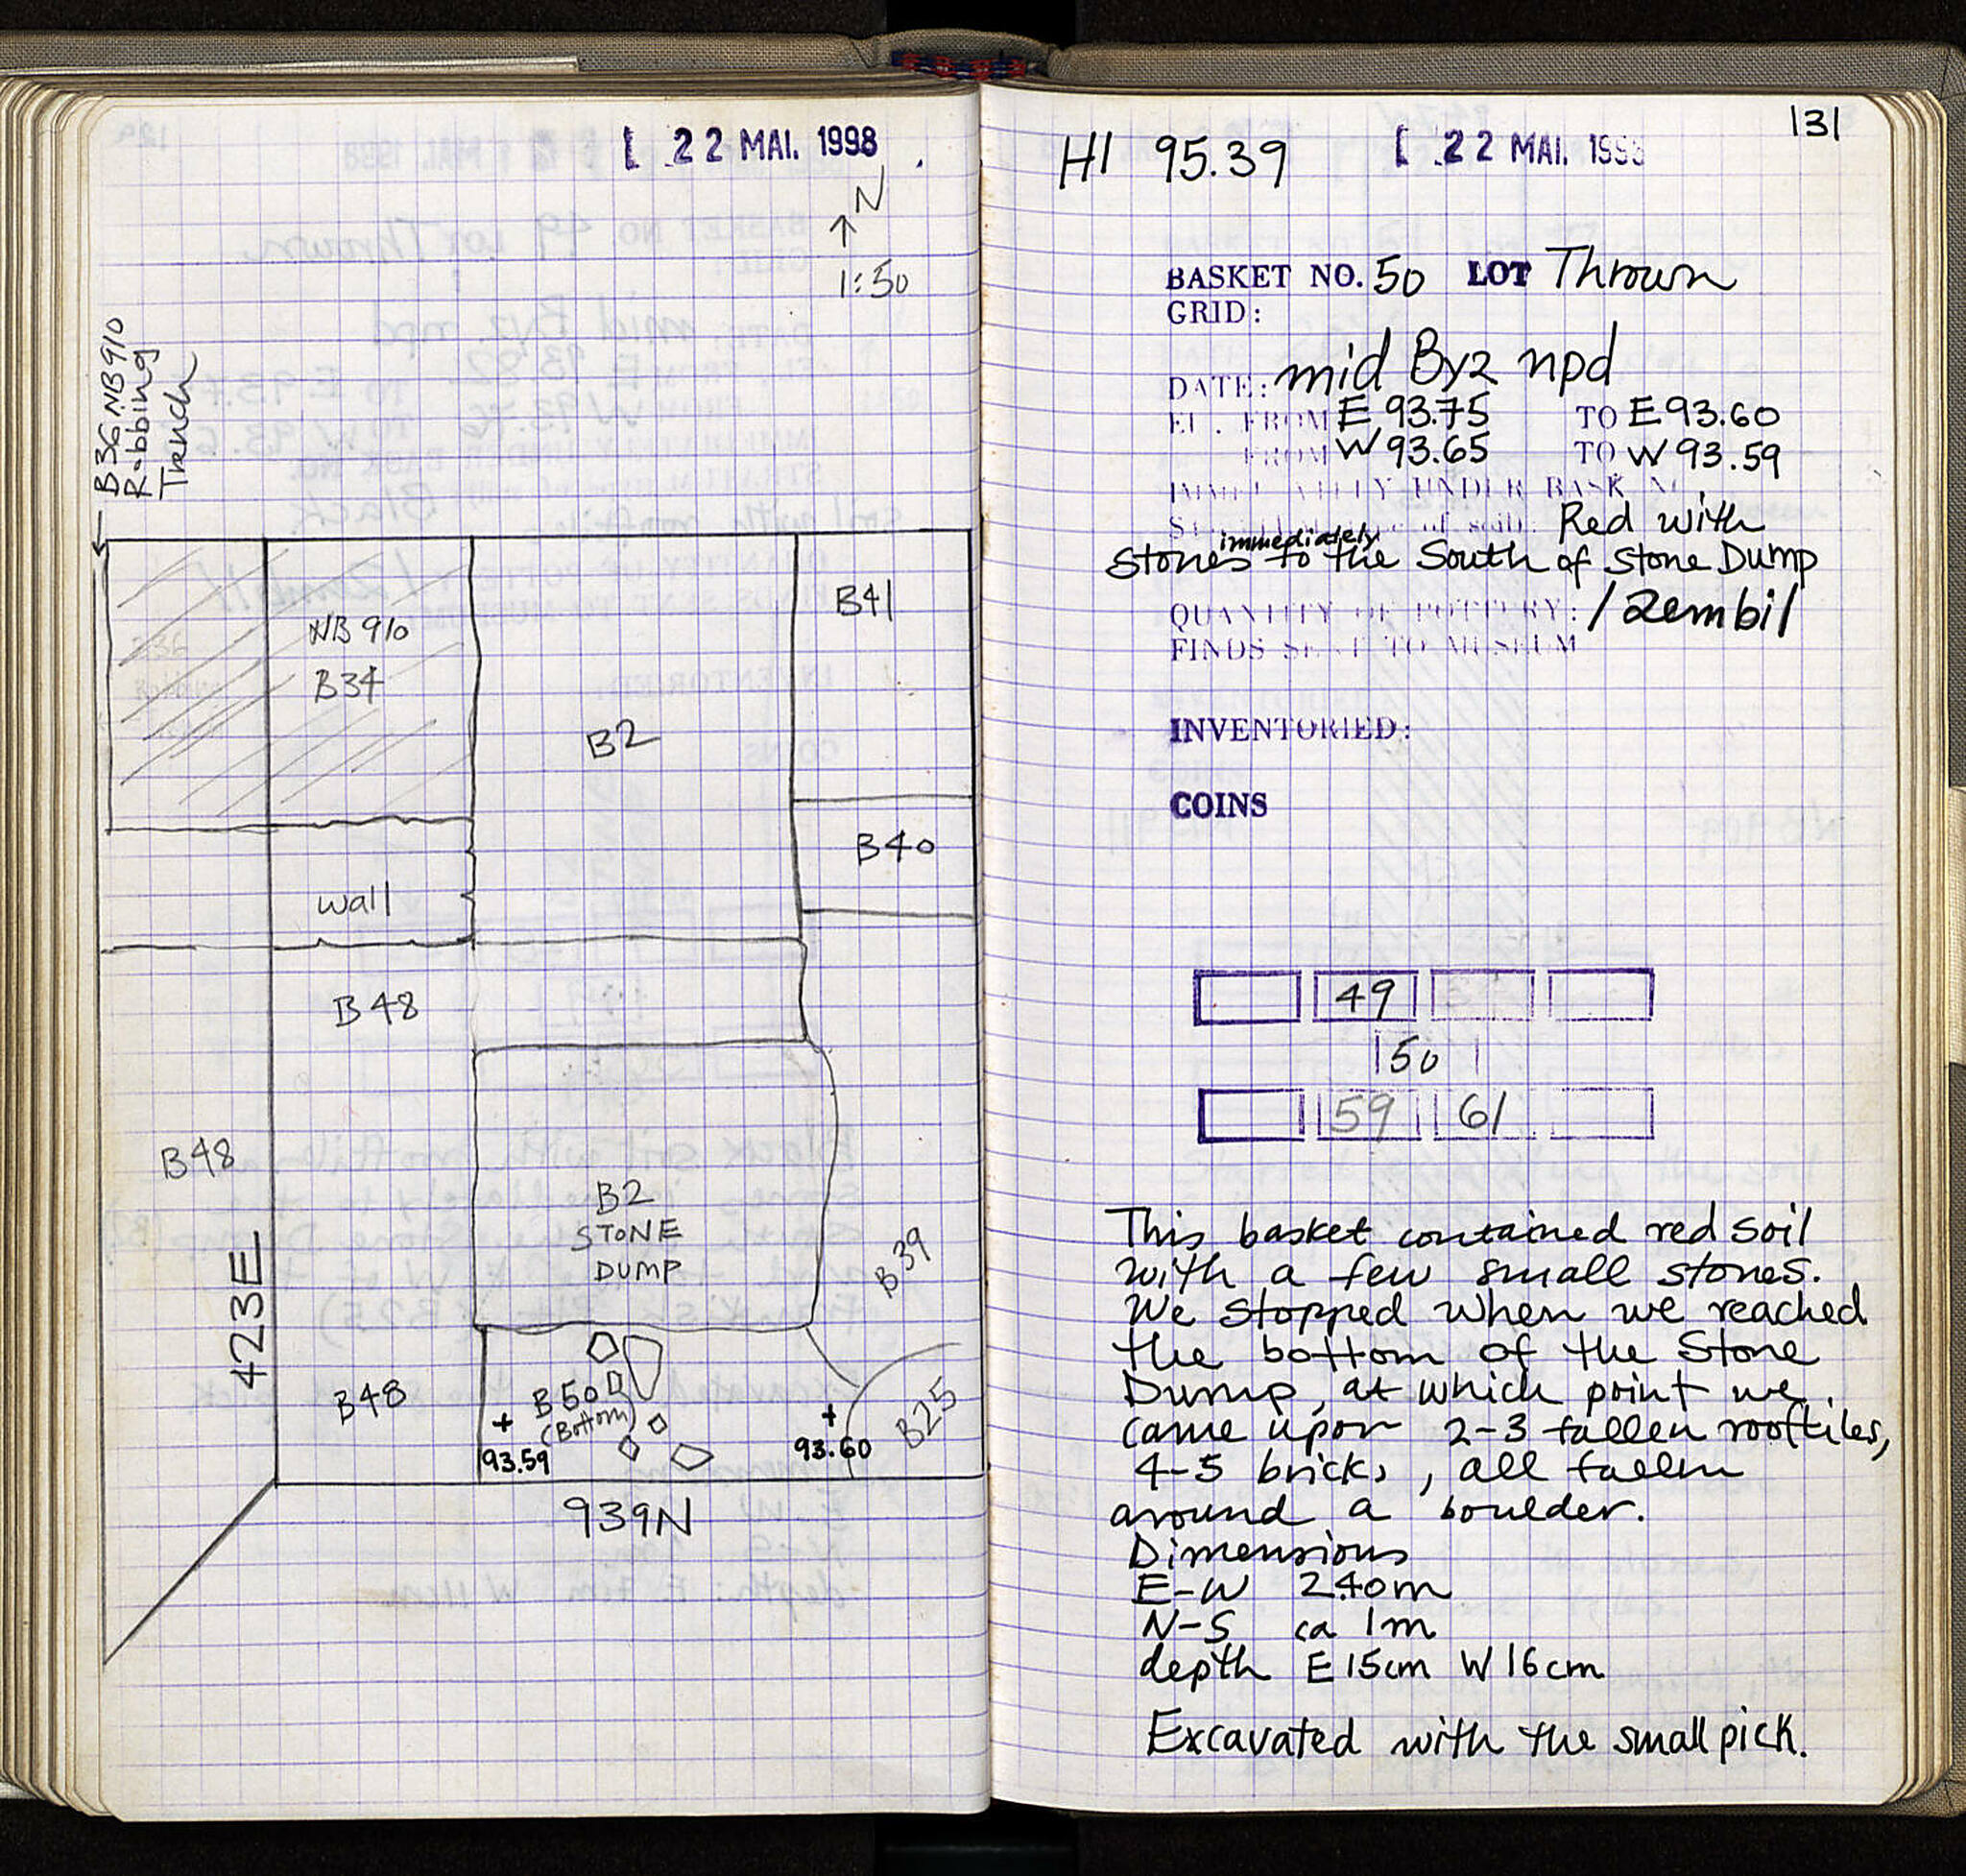 22 MAI. 1998
N
1:50
B36.NB910
Robbing
Trench
NB 910
B34
B2
B41
B40
wall
B48
B48
423E
B2
STONE
DUMP
B39
B48
B50
(Bottom)
93.59
93.60
B25
939N
131
HI 95.39
22 MAI. 1998
BASKET NO. 50 LOT Thrown
GRID:
DATE: mid Byz npd
EL. FROM E 93.75 TO E 93.60
FROM W 93.65 TO W 93.59
IMMEDIATELY UNDER BASK NO.
Red with
immediately
Stones to the South of Stone Dump
QUANTITY OF POTTERY: 1 Zembil
FINDS SENT TO MUSEUM
INVENTORIED:
COINS
49
50
59 61
This basket contained red soil
with a few small stones.
We stopped when we reached
the bottom of the Stone
Dump, at which point we
came upon 2-3 fallen rooftiles,
4-5 bricks, all fallen
around a boulder.
Dimensions
E-W 2.40m
N-S ca 1m
depth E 15cm W 16cm
Excavated with the small pick.